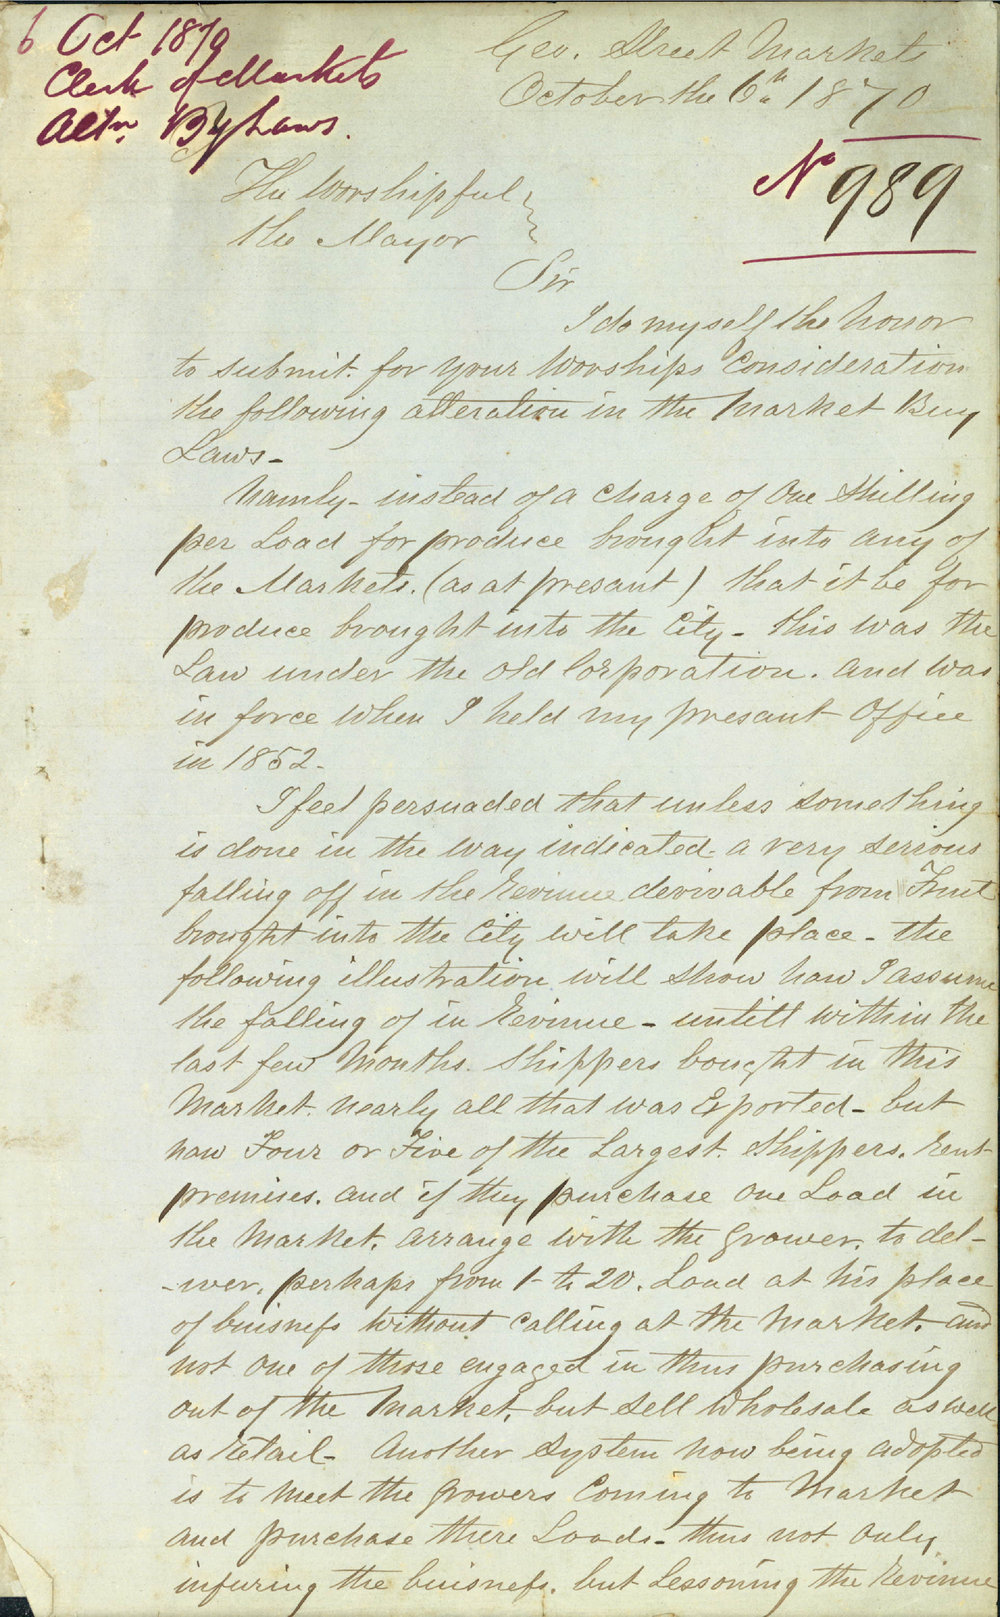 6 Oct 1870
Clerk of Markets
Altn. By Laws.
Geo. Street Markets
October the 6th. 1870
No 989
The Worshipful
the Mayor
Sir
I do myself the honor
to submit. for your Worships Consideration
the following alteration in the Market Buy
Laws-
Namly- instead of a charge of One Shilling
per Load for produce brought into any of
the Markets. (as at presant) that it be for
produce brought into the City- this was the
Law under the old Corporation. and was
in force when I held my presant Office
in 1852-
I feel persuaded that unless something
is done in the way indicated- a very serious
falling off in the Revinue derivable from Fruit
brought into the City will take place- the
following illustration will show how I assume
the falling of in Revinue- untill within the
last few Months. Shippers bought in this
Market. nearly all that was Exported- but
now Four or Five of the Largest. Shippers. Rent
premises. and if they purchase one Load in
the Market. arrange with the Grower. to del-
-iver. perhaps from 1- to 20. Load at his place
of buisness without calling at the Market. and
not one of those engaged in thus purchasing
out of the Market. but sell Wholesale as well
as Retail- Another System now being adopted
is to meet the Growers Coming to Market
and purchase there Loads- thus not only
injuring the buisness. but Lessoning the Revinue